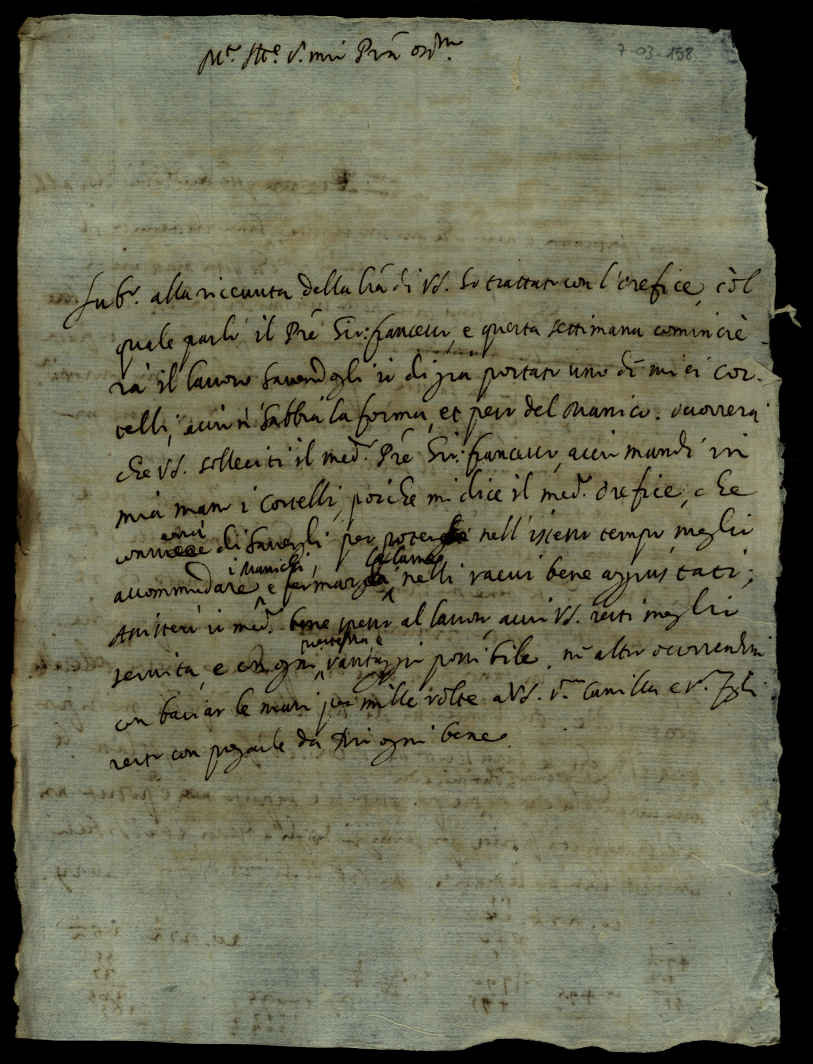 7-03-158
M.r Ill.e S.r mio Pron oss.mo
Sub.o alla ricevuta della lra di VS. ho trattato con l'orefice, col
quale parlò il Pre Gir: francesco, e questa settimana comincie-
rà il lavoro havendogli io di già portato uno di miei cor-
telli, acciò n'habbia la forma, et peso del manico. occorrerà
che VS. solleciti il med.o Pre Gir: francesco, acciò mandi in
mia mano i cortelli, poiche mi dice il med.o orefice, che
di haverli per poter nell'istesso tempo meglio
i manichi, le lame
accommodare, e fermar nelli vacui bene aggiustati;
Assisterò io med.o spesso al lavoro, acciò VS. resti meglio
servita, e con ogni vantaggio possibile. nè altro occorrendomi
con baciar le mani per mille volte a VS. S.ra Camilla e S.ri figli
resto con pregarle da Dio ogni bene.